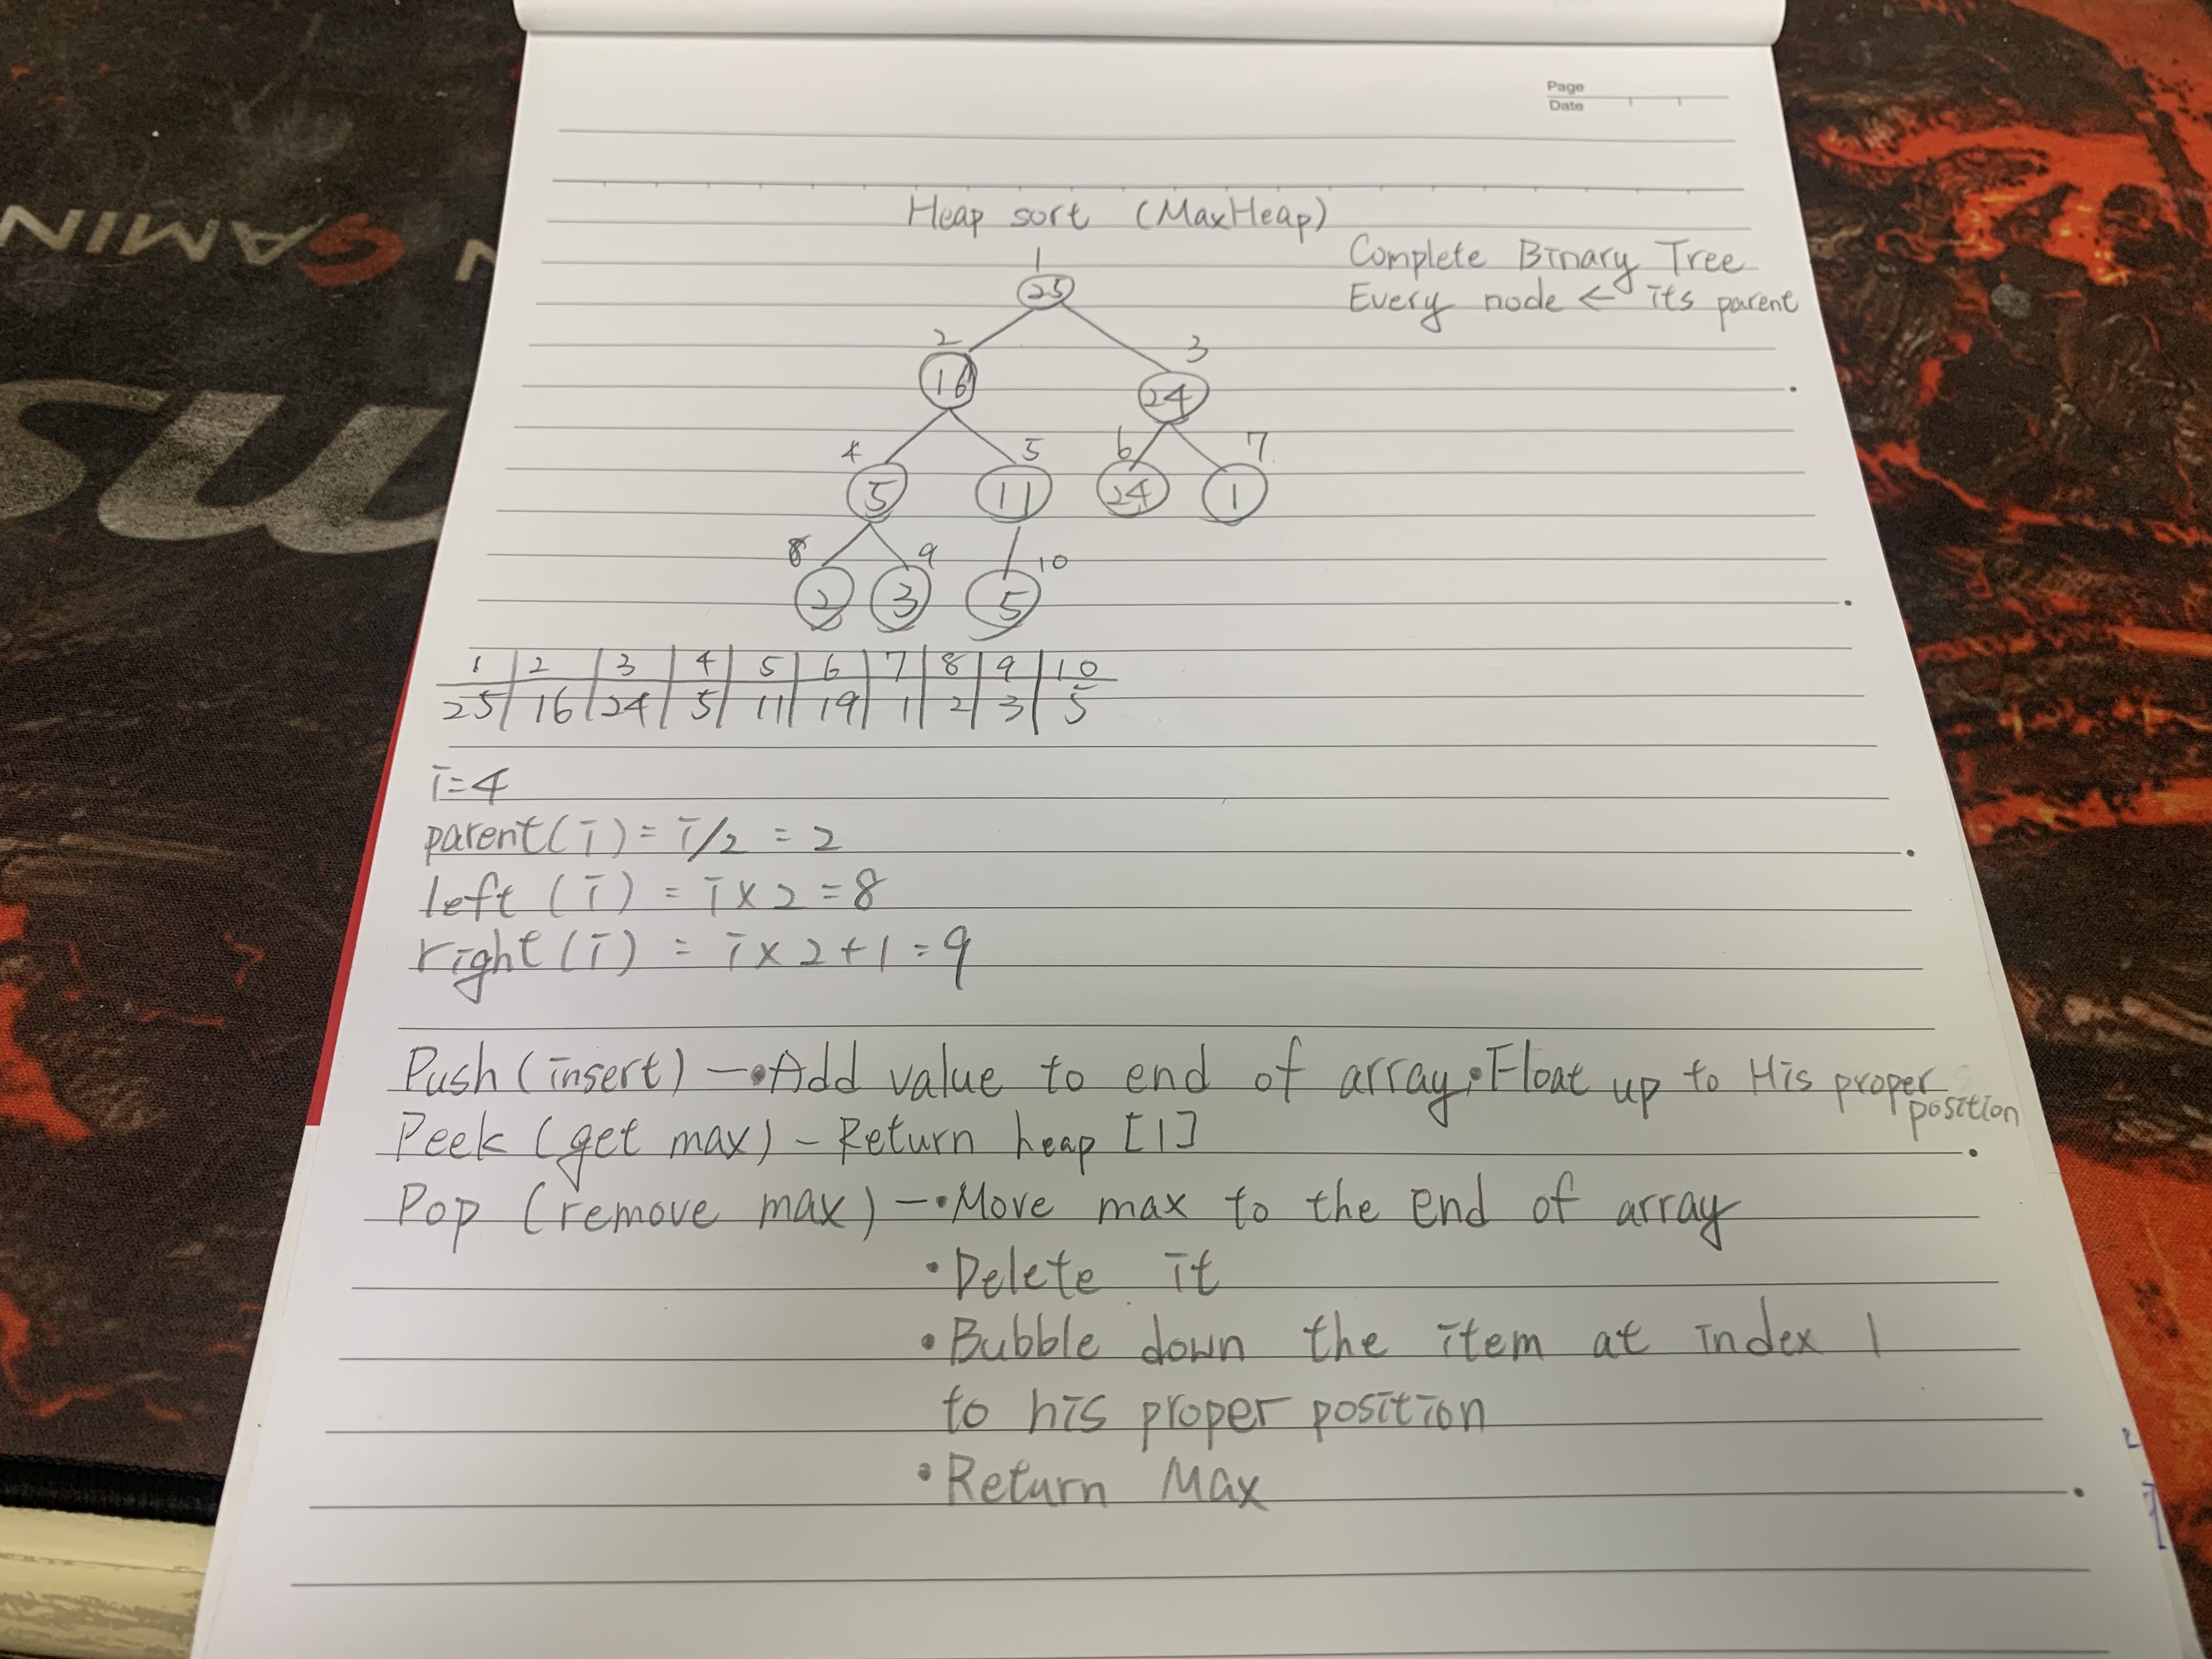 Page
Date
Heap sort (MaxHeap)
Complete Binary Tree
Every node ≤ its parent
1
25
2
3
16
24
4
5
6
7
5
11
24
1
8
9
10
2
3
5
1 | 2 | 3 | 4 | 5 | 6 | 7 | 8 | 9 | 10
25 | 16 | 24 | 5 | 11 | 19 | 1 | 2 | 3 | 5
i=4
parent(i) = i/2 = 2
left (i) = i x 2 = 8
right (i) = i x 2 + 1 = 9
Push (insert) - •Add value to end of array, •Float up to His proper position
Peek (get max) - Return heap [1]
Pop (remove max) - •Move max to the end of array
•Delete it
•Bubble down the item at index 1
to his proper position
•Return Max